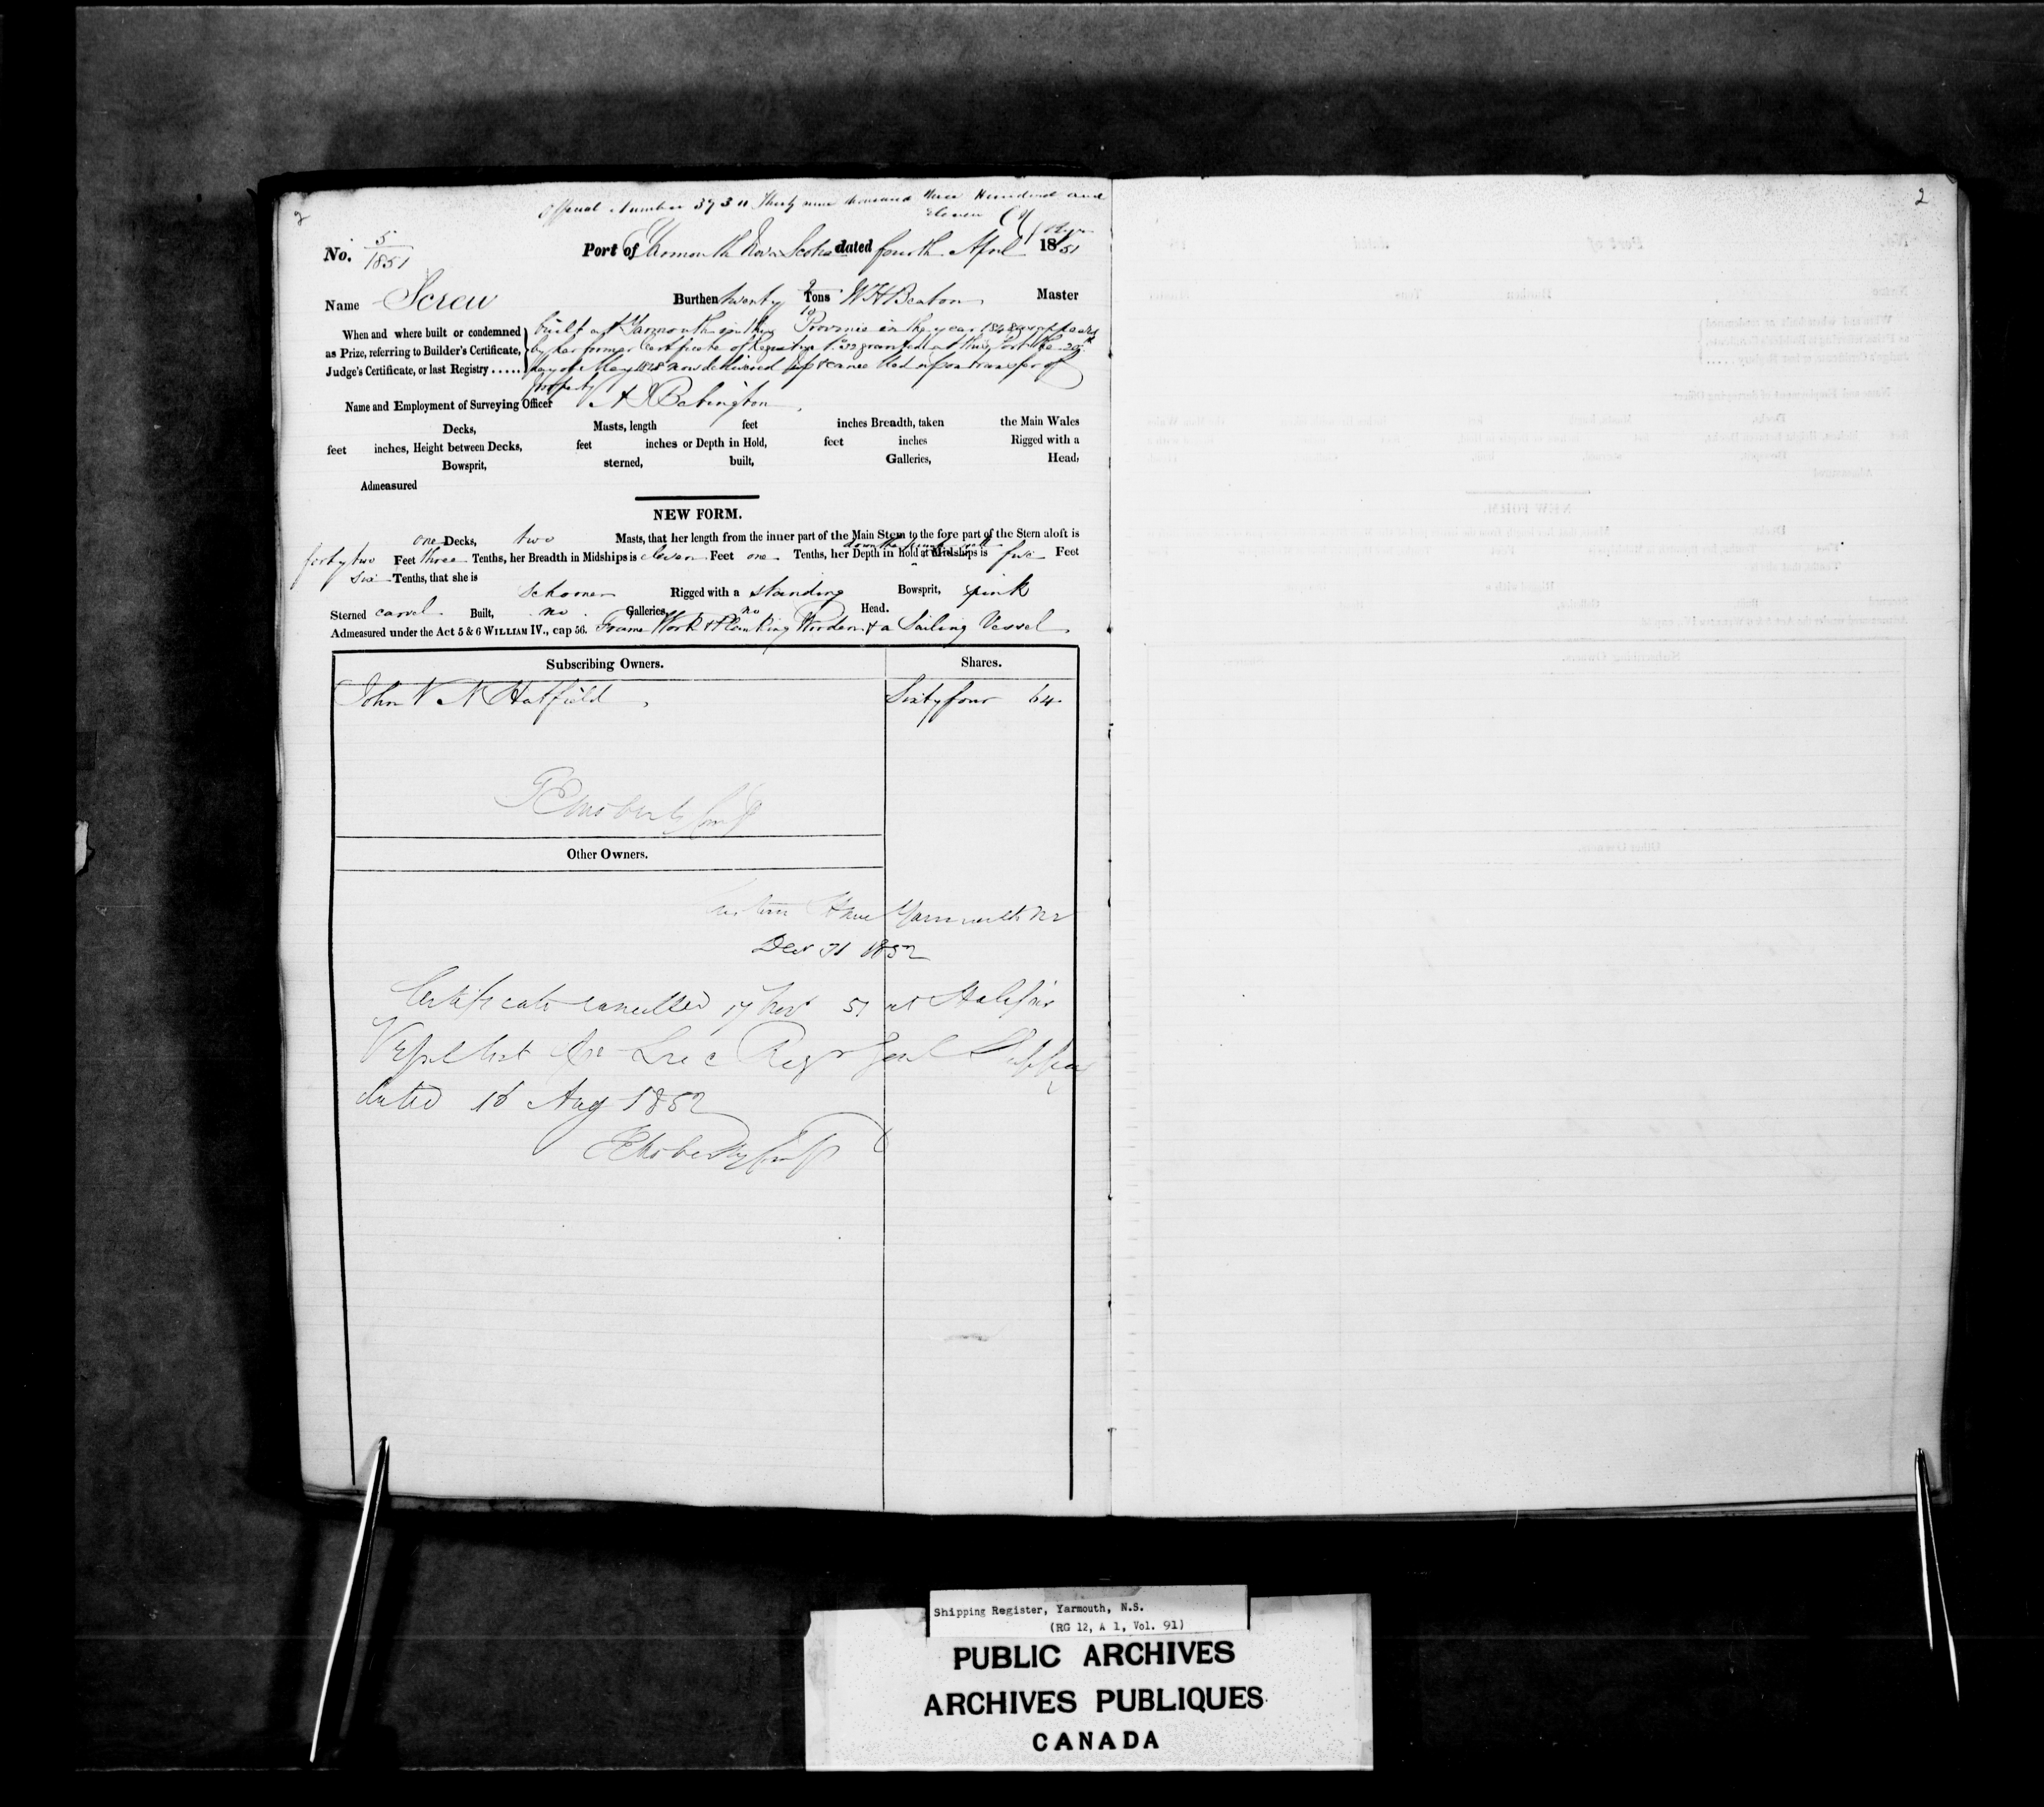 2
2
Official Number 39311 Thirty nine thousand three Hundred and
eleven
No. 5/1851 Port of Yarmouth Nova Scotia dated fourth April 1851
Name Screw Burthen twenty 9/10 Tons W H Beaton Master
When and where built or condemned built at Yarmouth in this Province in the year 1848 as appears
as Prize, referring to Builder's Certificate, by her former Certificate of Registry No 22 granted at this Port the 20th
Judge's Certificate, or last Registry..... day of May 1848 now delivered up & cancelled upon transfer of
property
Name and Employment of Surveying Officer A J Babington
Decks, Masts, length feet inches Breadth, taken the Main Wales
feet inches, Height between Decks, feet inches or Depth in Hold, feet inches Rigged with a
Bowsprit, sterned, built, Galleries, Head,
Admeasured
NEW FORM.
one Decks, two Masts, that her length from the inner part of the Main Stem to the fore part of the Stern aloft is
forty two Feet three Tenths, her Breadth in Midships is eleven Feet one Tenths, her Depth in hold at Midships is five Feet
six Tenths, that she is
schooner Rigged with a standing Bowsprit, pink
Sterned carvel Built, no Galleries, no Head.
Admeasured under the Act 5 & 6 WILLIAM IV., cap 56. Frame Work & Planking Wooden & a Sailing Vessel
Subscribing Owners. Shares.
John V N Hatfield Sixty four 64
Other Owners.
Custom House Yarmouth NS
Dec 31 1852
Certificate cancelled 17 Nov 51 at Halifax
Vessel lost See Regr Genl Shipping
dated 16 Aug 1852
Shipping Register, Yarmouth, N.S.
(RG 12, A 1, Vol. 91)
PUBLIC ARCHIVES
ARCHIVES PUBLIQUES
CANADA